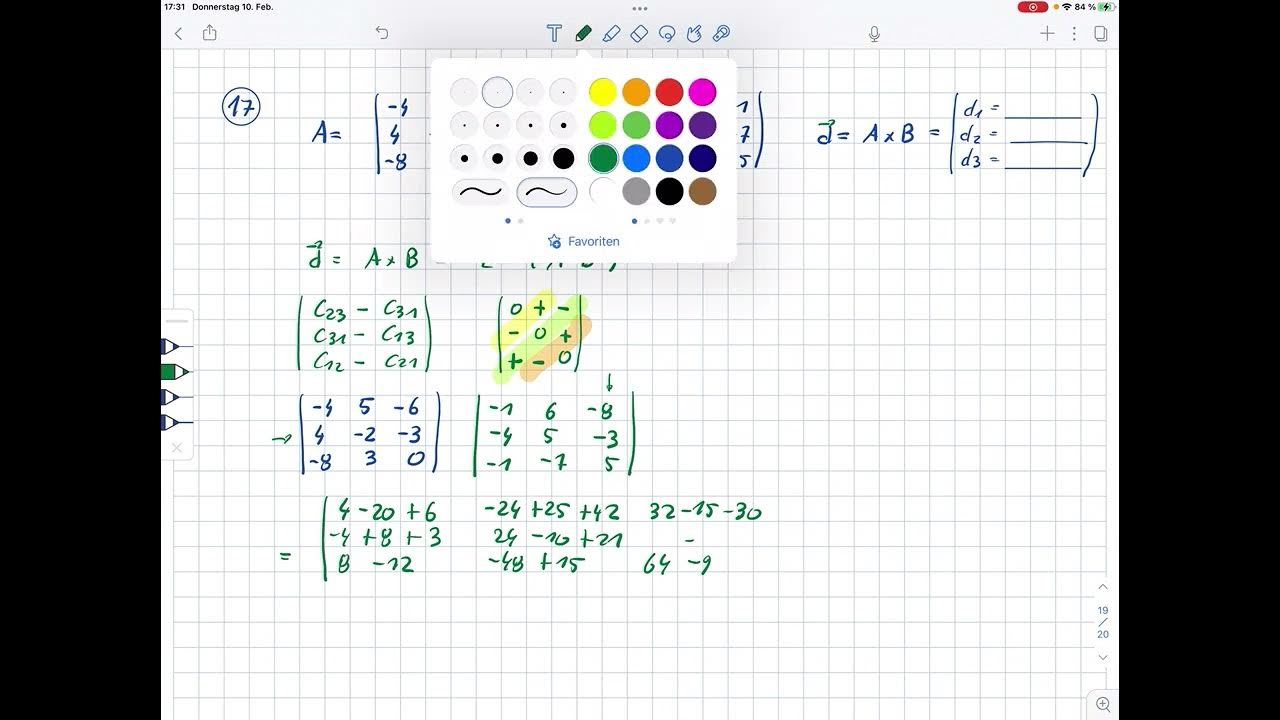 17:31 Donnerstag 10. Feb.
84 %
T
17
A =
-4
4
-8
1
7
5
d⃗ = A × B =
d1 = ______
d2 = ______
d3 = ______
Favoriten
d⃗ = A × B
C23 - C31
C31 - C13
C12 - C21
0 + -
- 0 +
+ - 0
→ -4 5 -6
4 -2 -3
-8 3 0
↓
-1 6 -8
-4 5 -3
-1 -7 5
=
4 -20 +6 -24 +25 +42 32 -15 -30
-4 +8 +3 24 -10 +21 -
8 -12 -48 +15 64 -9
19
/
20